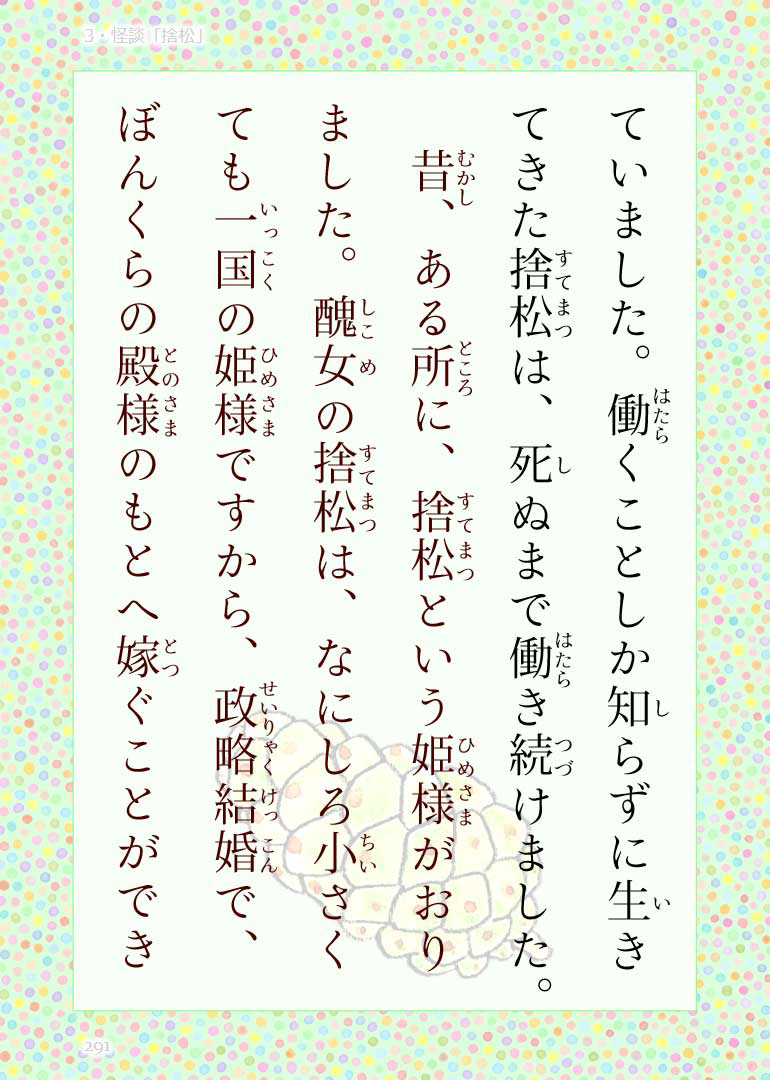 3・怪談「捨松」
ていました。働くことしか知らずに生き
てきた捨松は、死ぬまで働き続けました。
昔、ある所に、捨松という姫様がおり
ました。醜女の捨松は、なにしろ小さく
ても一国の姫様ですから、政略結婚で、
ぼんくらの殿様のもとへ嫁ぐことができ
291